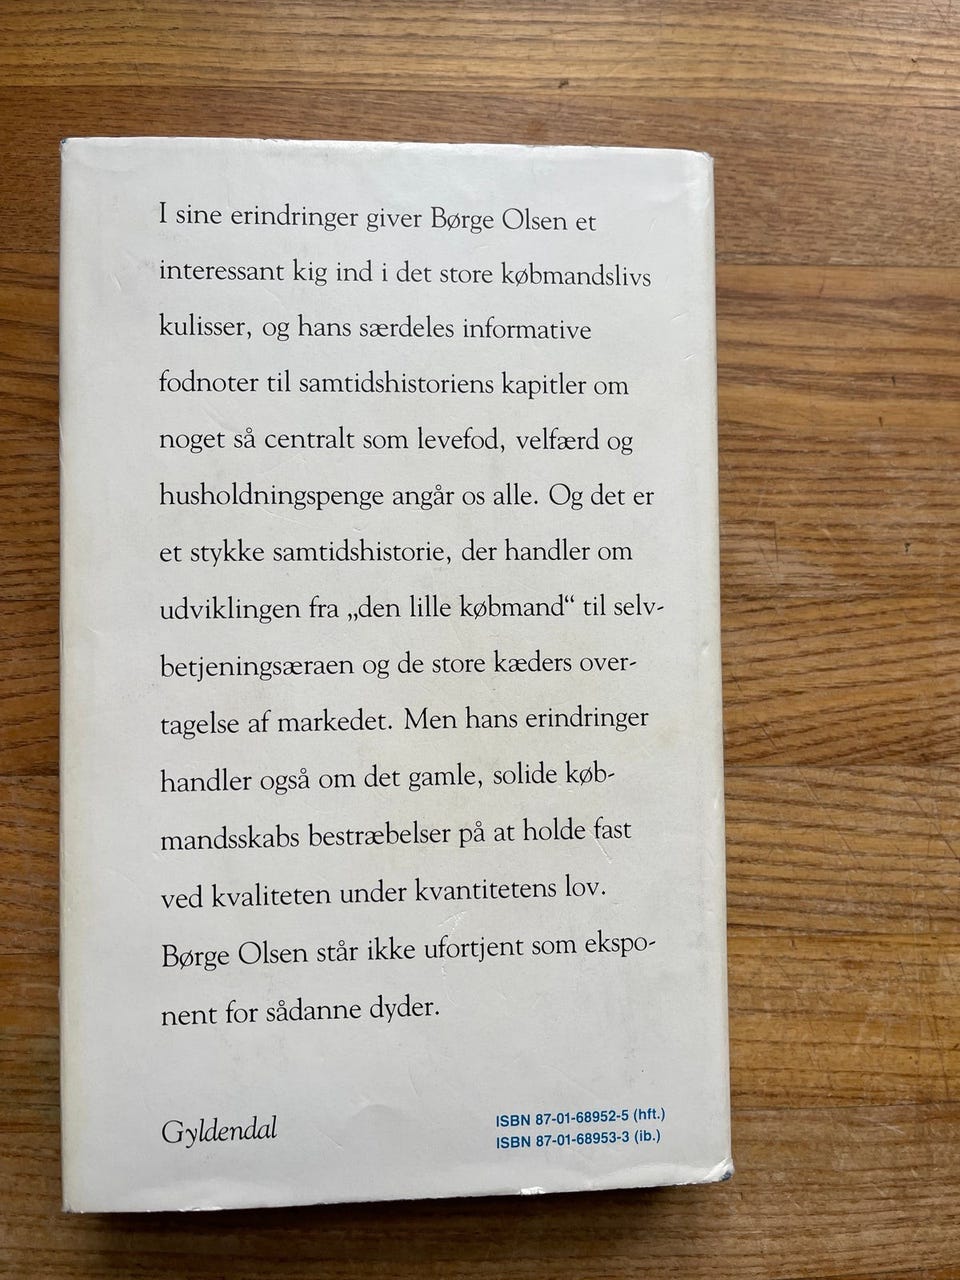 I sine erindringer giver Børge Olsen et
interessant kig ind i det store købmandslivs
kulisser, og hans særdeles informative
fodnoter til samtidshistoriens kapitler om
noget så centralt som levefod, velfærd og
husholdningspenge angår os alle. Og det er
et stykke samtidshistorie, der handler om
udviklingen fra „den lille købmand“ til selv-
betjeningsæraen og de store kæders over-
tagelse af markedet. Men hans erindringer
handler også om det gamle, solide køb-
mandsskabs bestræbelser på at holde fast
ved kvaliteten under kvantitetens lov.
Børge Olsen står ikke ufortjent som ekspo-
nent for sådanne dyder.
Gyldendal
ISBN 87-01-68952-5 (hft.)
ISBN 87-01-68953-3 (ib.)